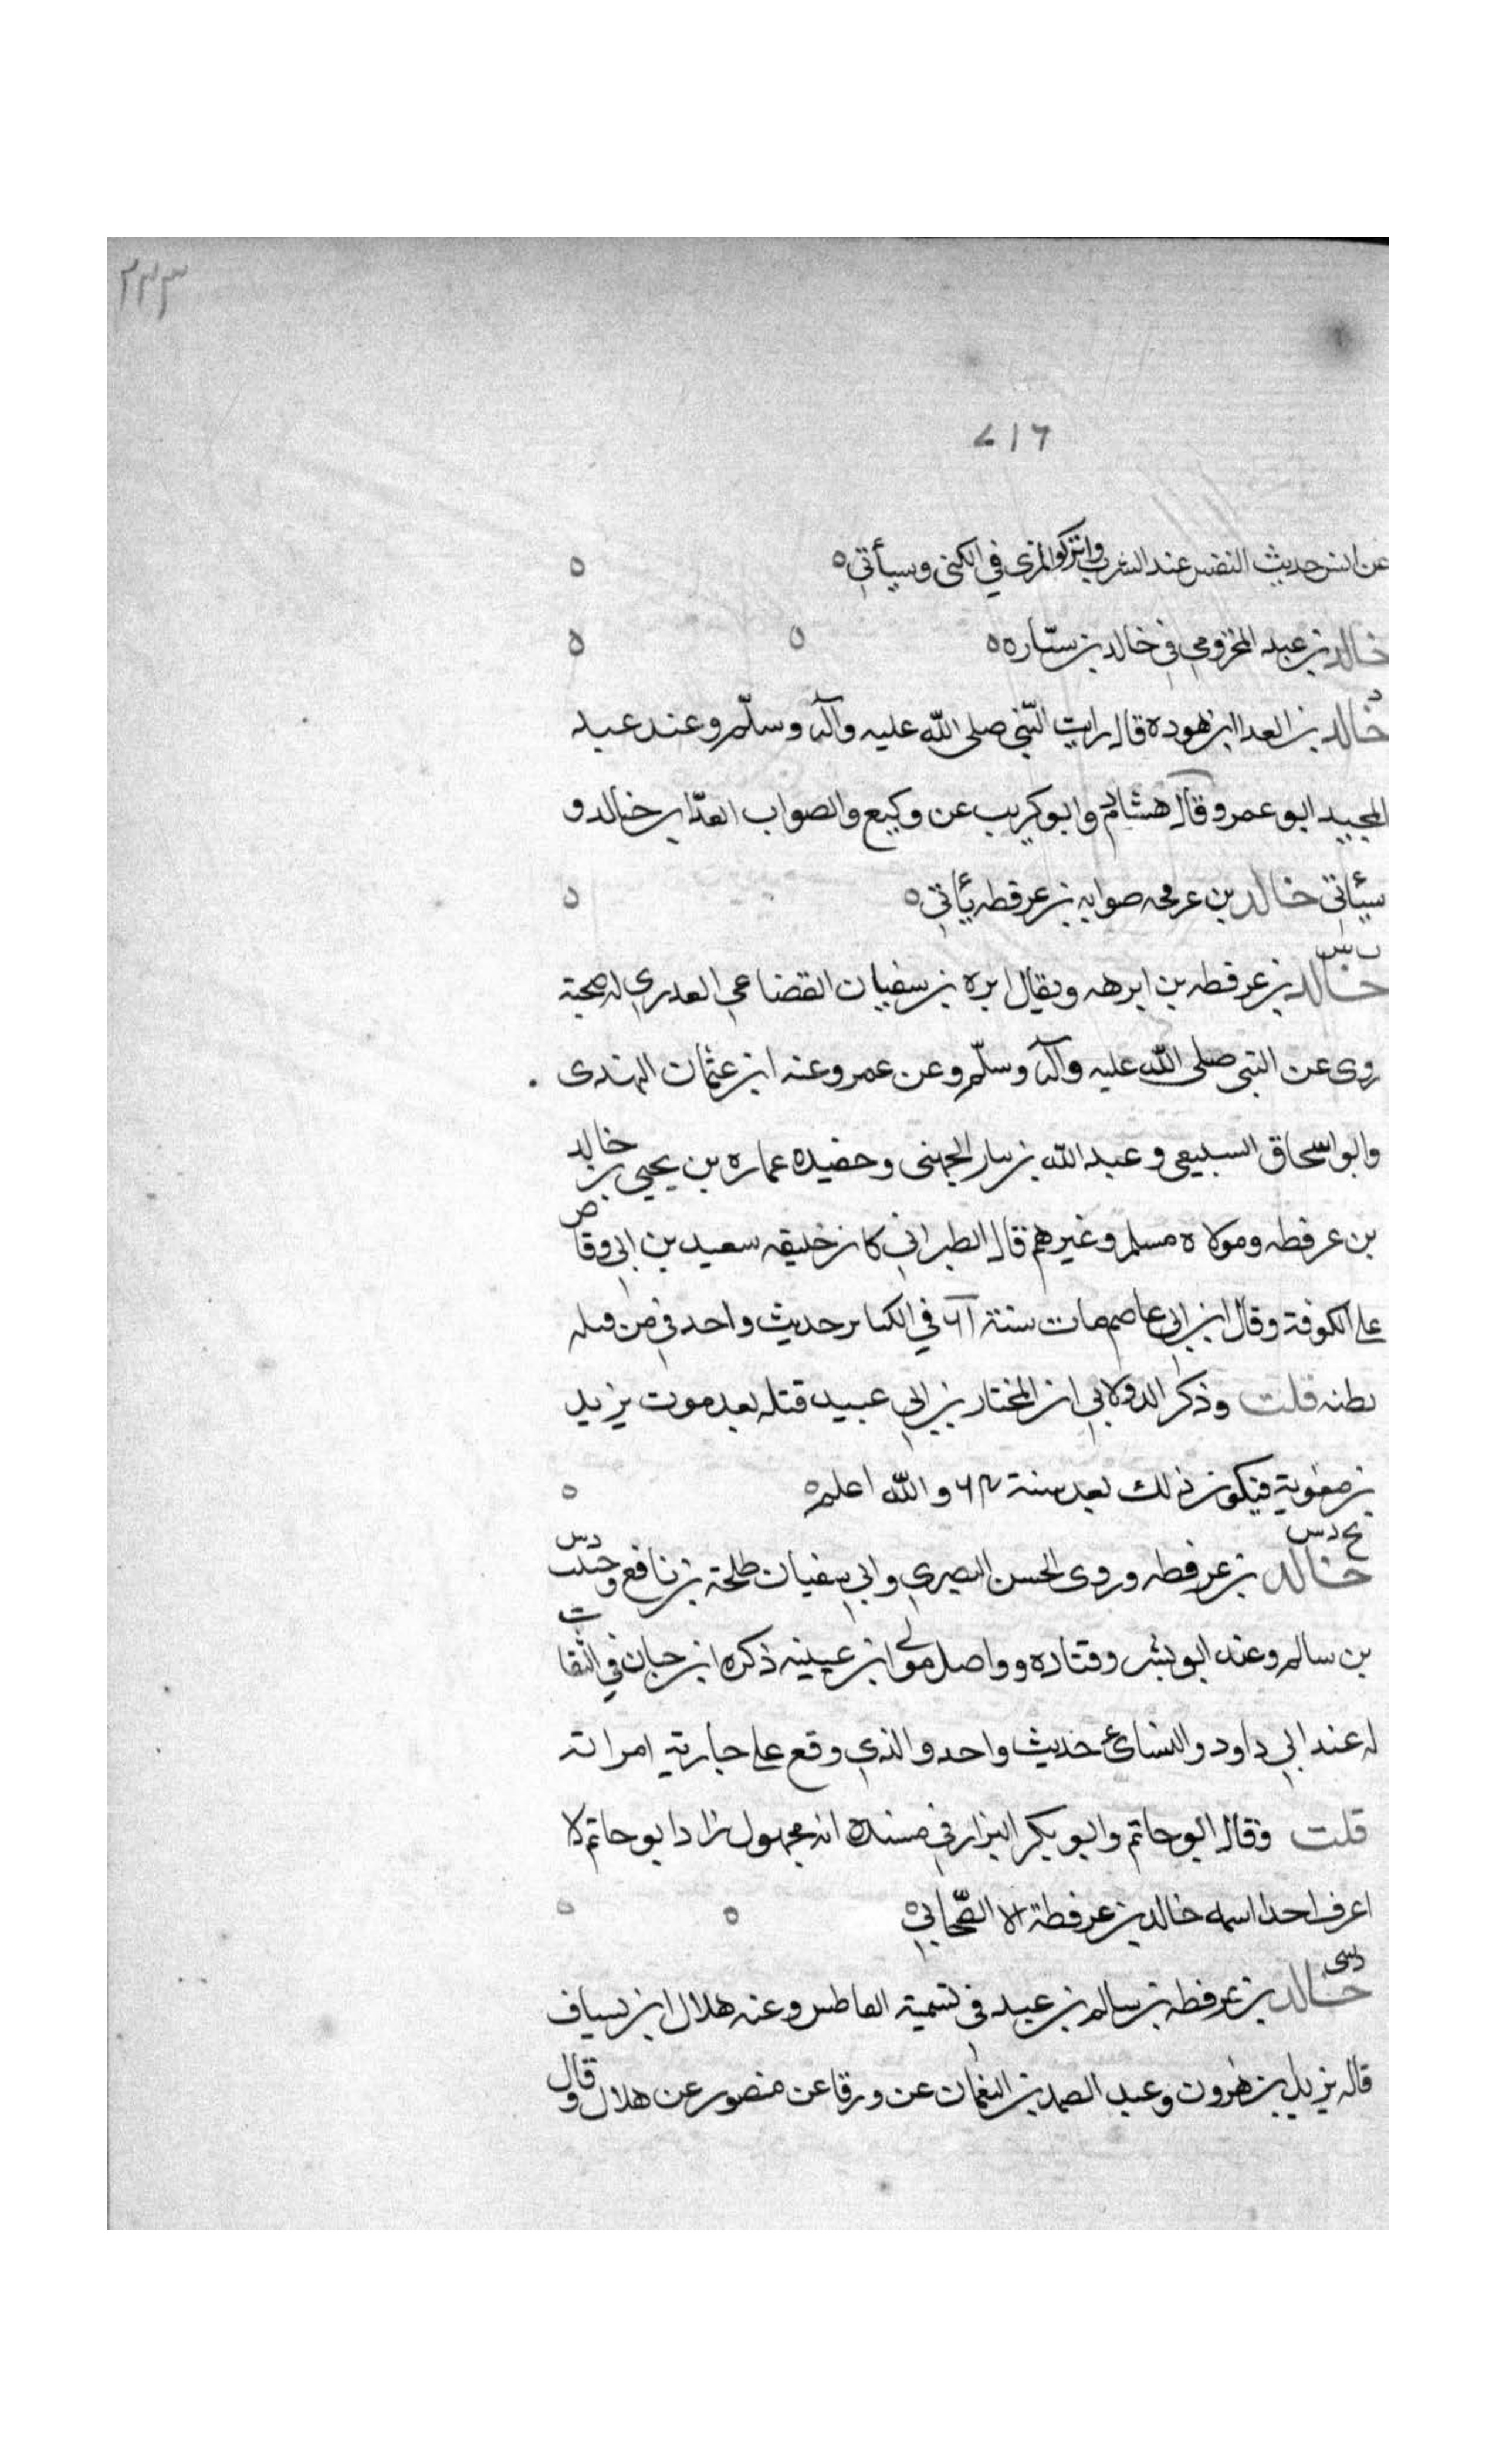 ٢٣٣
٧١٦
عن انس حديث النفس عند الشرب واستركه المزى في الكنى وسيأتي ه ه
خالد بن عبد المخزومي في خالد بن ستاره ه ه ه
د
خالد بن العدا ابن هوده قال رايت النبي صلى الله عليه وآله وسلم وعند عبد
المجيد ابو عمرو قال هشام وابو كريب عن وكيع والصواب العدا بن خالد و
سيأتي خالد بن عرفحه صوابه بن عرفطه يأتي ه ه
ت س
خالد بن عرفطه بن ابرهه ويقال ابره بن سفيان القضاعي العدري له صحبة
روى عن النبي صلى الله عليه وآله وسلم وعن عمر وعنه ابن عثمان الهندى .
وابو اسحاق السبيعي وعبد الله بن يسار الجهنى وحفيده عماره بن يحيى بن خالد
بن عرفطه ومولاه مسلم وغيرهم قال الطبراني كان خليفه سعيد بن ابي وقاص
على الكوفة وقال ابن ابي عاصم مات سنة ٦١ في الكتاب حديث واحد في من قبله
بطنه قلت وذكر الدولابي ان المختار بن ابي عبيد قتله بعد موت يزيد
بن معوية فيكون ذلك بعد سنة ٦٤ والله اعلم ه ه
بخ د س
خالد بن عرفطه وروى الحسن البصري وابي سفيان طلحة بن نافع وحبيب
بن سالم وعنه ابو بشر وقتاده وواصل مولى ابن عيينه ذكره ابن حبان في الثقات
له عند ابي داود والنسائي حديث واحد والذي وقع على جارية امراته
قلت وقال ابو حاتم وابو بكر البزار في مسنده انه مجهول زاد ابو حاتم لا
اعرف احدا اسمه خالد بن عرفطة الا الصحابي ه ه ه
د سى
خالد بن عرفطه بن سالم بن عبيد في تسمية العاطس وعنه هلال ابن يساف
قاله يزيد بن هرون وعبد الصمد بن النعمان عن ورقا عن منصور عن هلال وقال